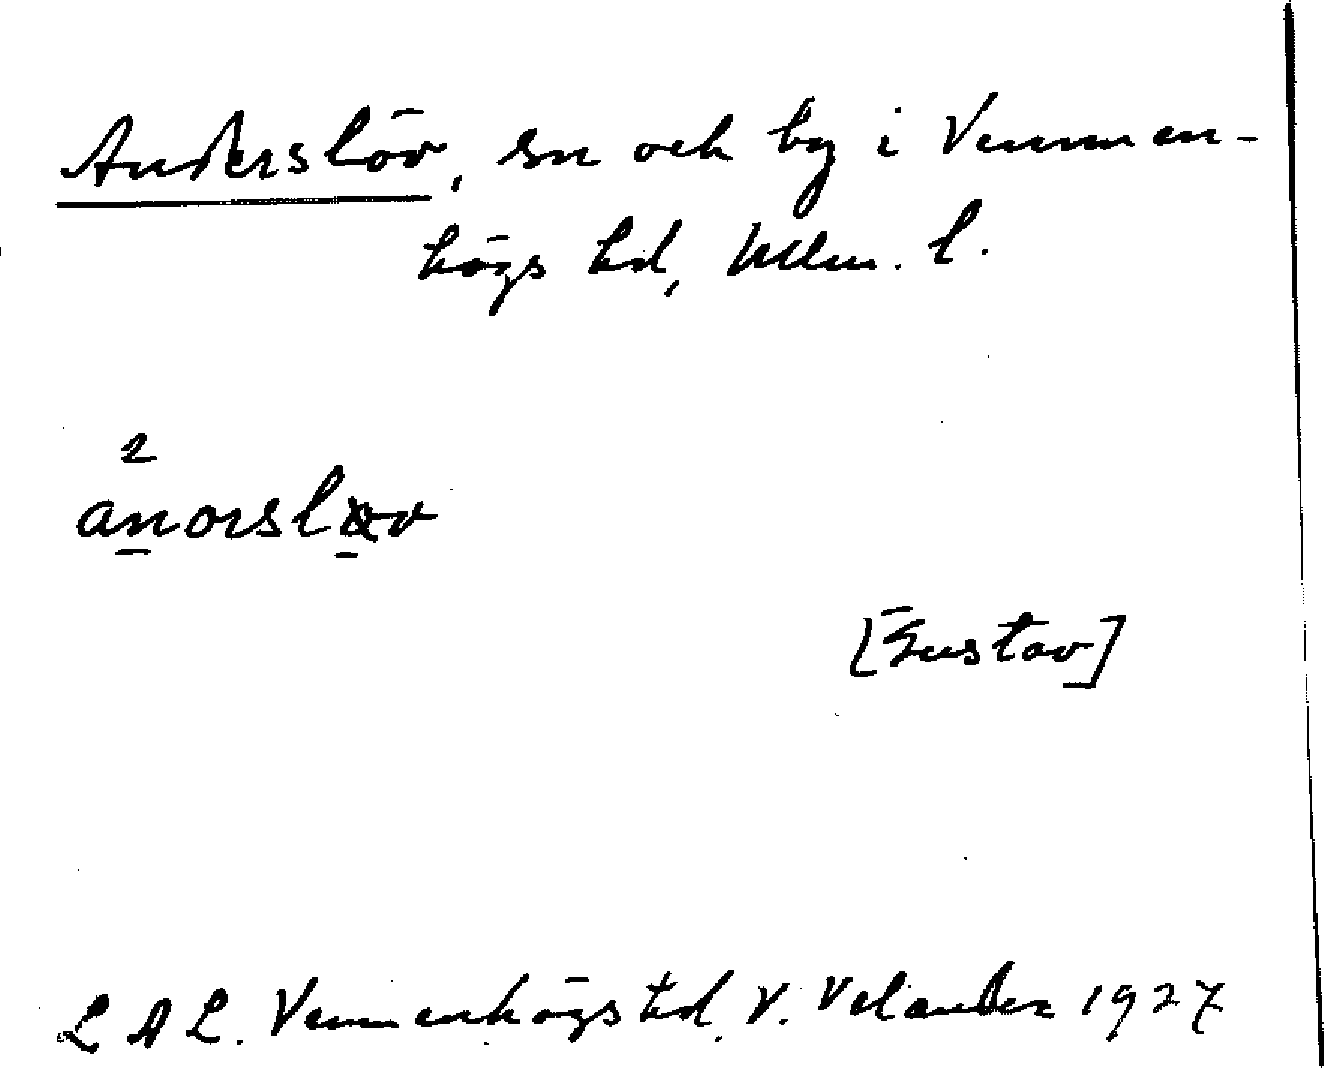 Anderslöv, sn och by i Vemmen-
högs hd, Mlm. l.
2
anorsləv
[Gustav]
L A L. Vemmenhögs hd. V. Velander 1927